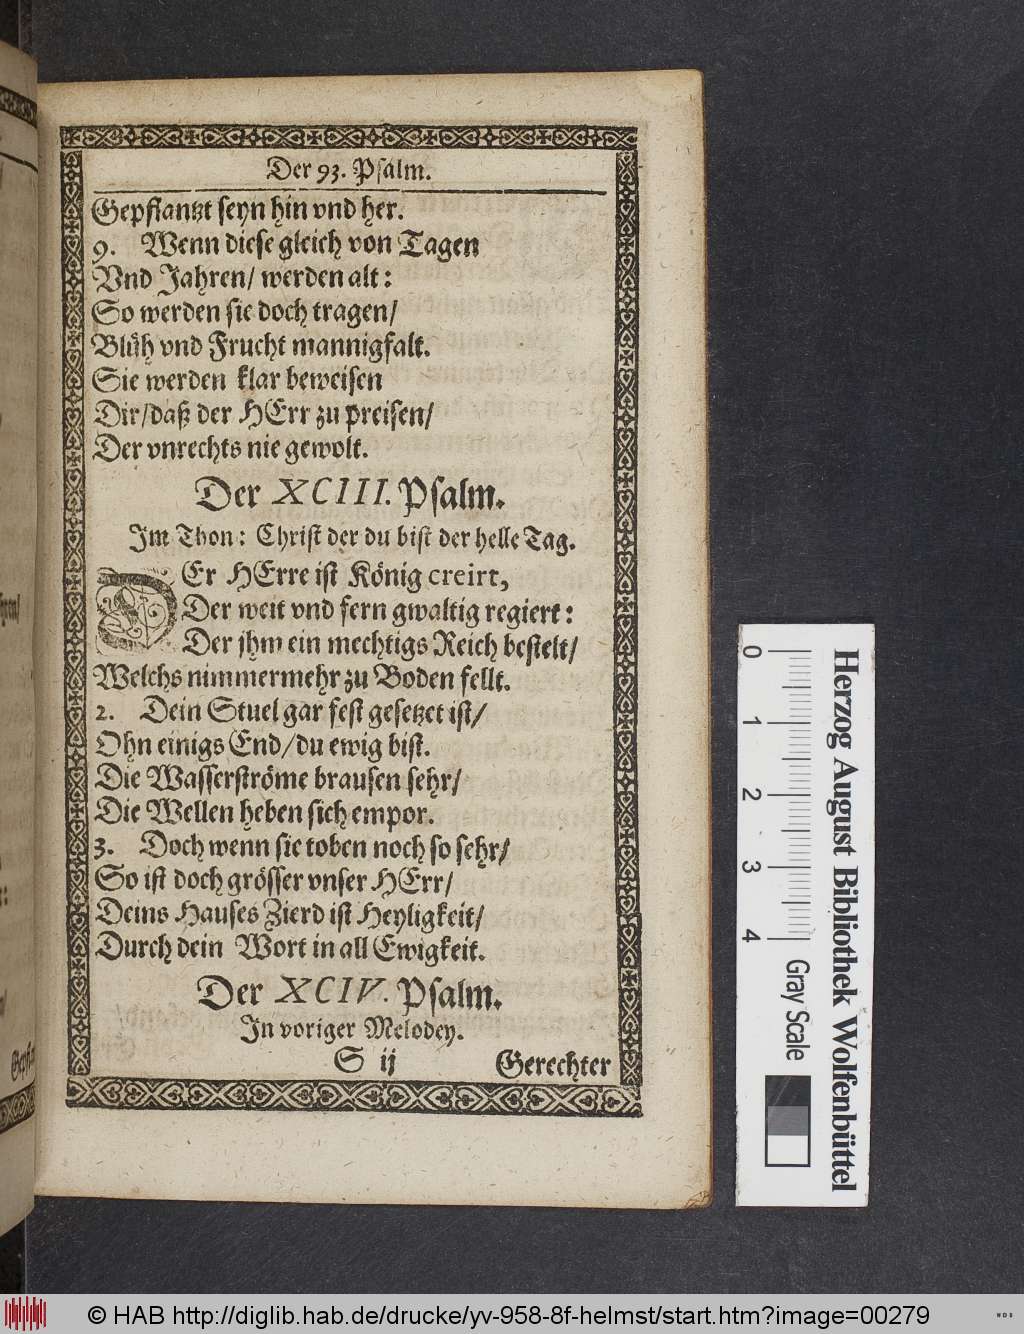 Der 93. Psalm.
Gepflantzt seyn hin vnd her.
9. Wenn diese gleich von Tagen
Vnd Jahren/ werden alt:
So werden sie doch tragen/
Blüh vnd Frucht mannigfalt.
Sie werden klar beweisen
Dir/daß der HErr zu preisen/
Der vnrechts nie gewolt.
Der XCIII. Psalm.
Im Thon: Christ der du bist der helle Tag.
DEr HErre ist König creirt,
Der weit vnd fern gwaltig regiert:
Der jhm ein mechtigs Reich bestelt/
Welchs nimmermehr zu Boden fellt.
2. Dein Stuel gar fest gesetzet ist/
Ohn einigs End/du ewig bist.
Die Wasserströme brausen sehr/
Die Wellen heben sich empor.
3. Doch wenn sie toben noch so sehr/
So ist doch grösser vnser HErr/
Deins Hauses Zierd ist Heyligkeit/
Durch dein Wort in all Ewigkeit.
Der XCIV. Psalm.
In voriger Melodey.
S ij Gerechter
0 1 2 3 4
Gray Scale
Herzog August Bibliothek Wolfenbüttel
© HAB http://diglib.hab.de/drucke/yv-958-8f-helmst/start.htm?image=00279